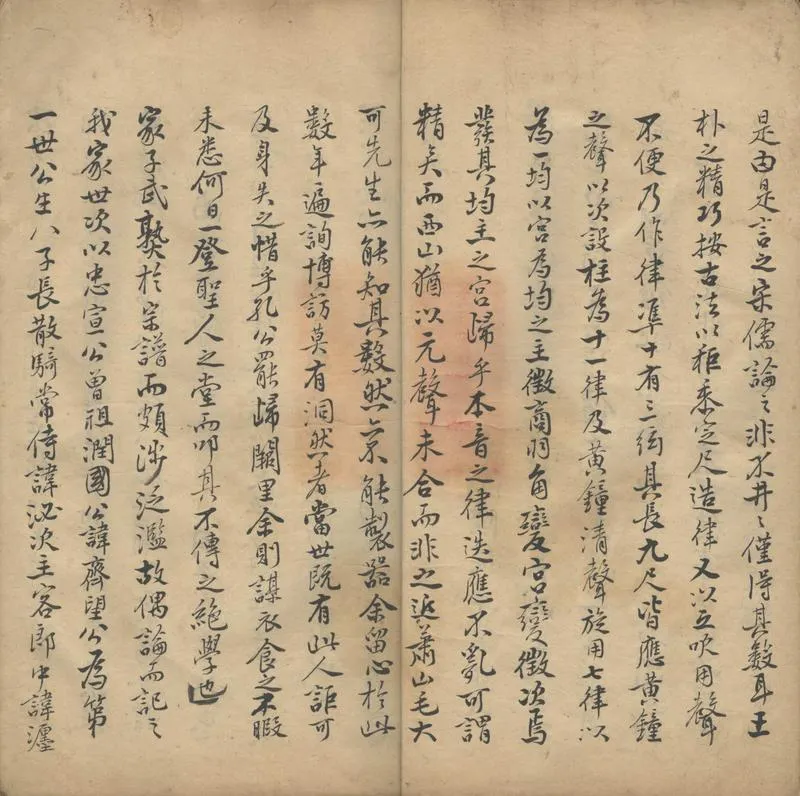 是由是言之宋儒論之非不井〻僅得其数耳王
朴之精巧按古法以秬黍定尺造律又以互吹用聲
不便乃作律準十有三絃其長九尺皆應黄鐘
之聲以次設柱為十一律及黄鐘清聲旋用七律以
為一均以宮為均之主徵商羽角變宮變徵次焉
發其均主之宮歸乎本音之律迭應不亂可謂
精矣而西山猶以元聲未合而非之迨蕭山毛大
可先生亦能知其數然未能製器余留心於此
数年遍詢博訪莫有洞然者當世既有此人詎可
及身失之惜乎孔公罷歸闕里余則謀衣食之不暇
未悉何日一登聖人之堂而叩其不傳之絶學也
家子武熟於宗譜而頗涉泛濫故偶論而記之
我家世次以忠宣公曾祖潤國公諱齊望公為第
一世公生八子長散騎常侍諱泌次主客郎中諱瀍